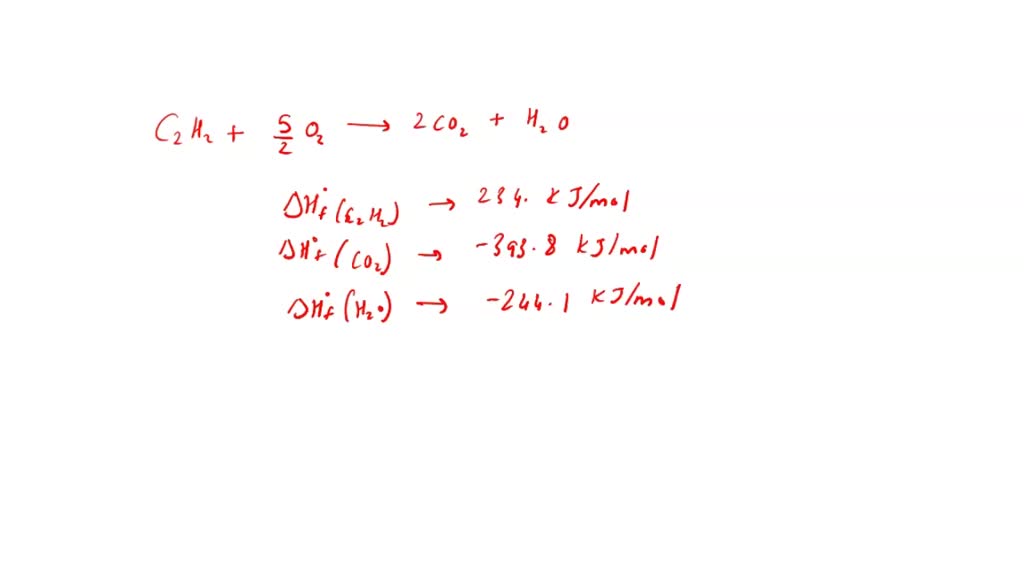 C₂H₂ + 5/2 O₂ → 2CO₂ + H₂O
ΔH°f (C₂H₂) → 234. kJ/mol
ΔH°f (CO₂) → -393.8 kJ/mol
ΔH°f (H₂O) → -244.1 kJ/mol